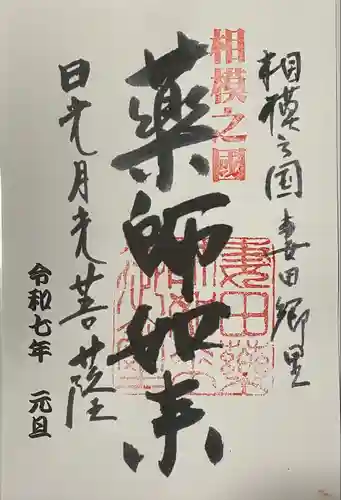 相模之国妻田郷里
相模之國
薬師如来
日光月光菩薩
令和七年 元旦